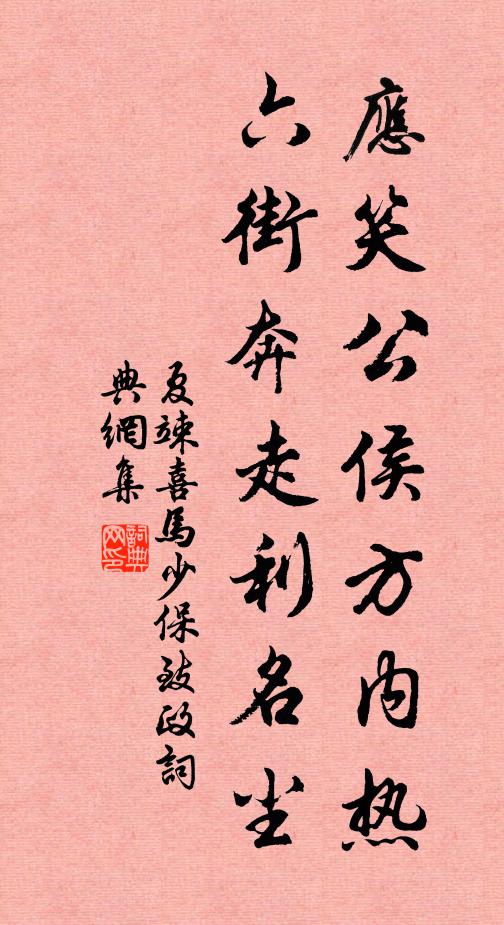 應笑公侯方内热
六街奔走利名尘
夏竦喜馬少保致政詞
典網集
詞典网印